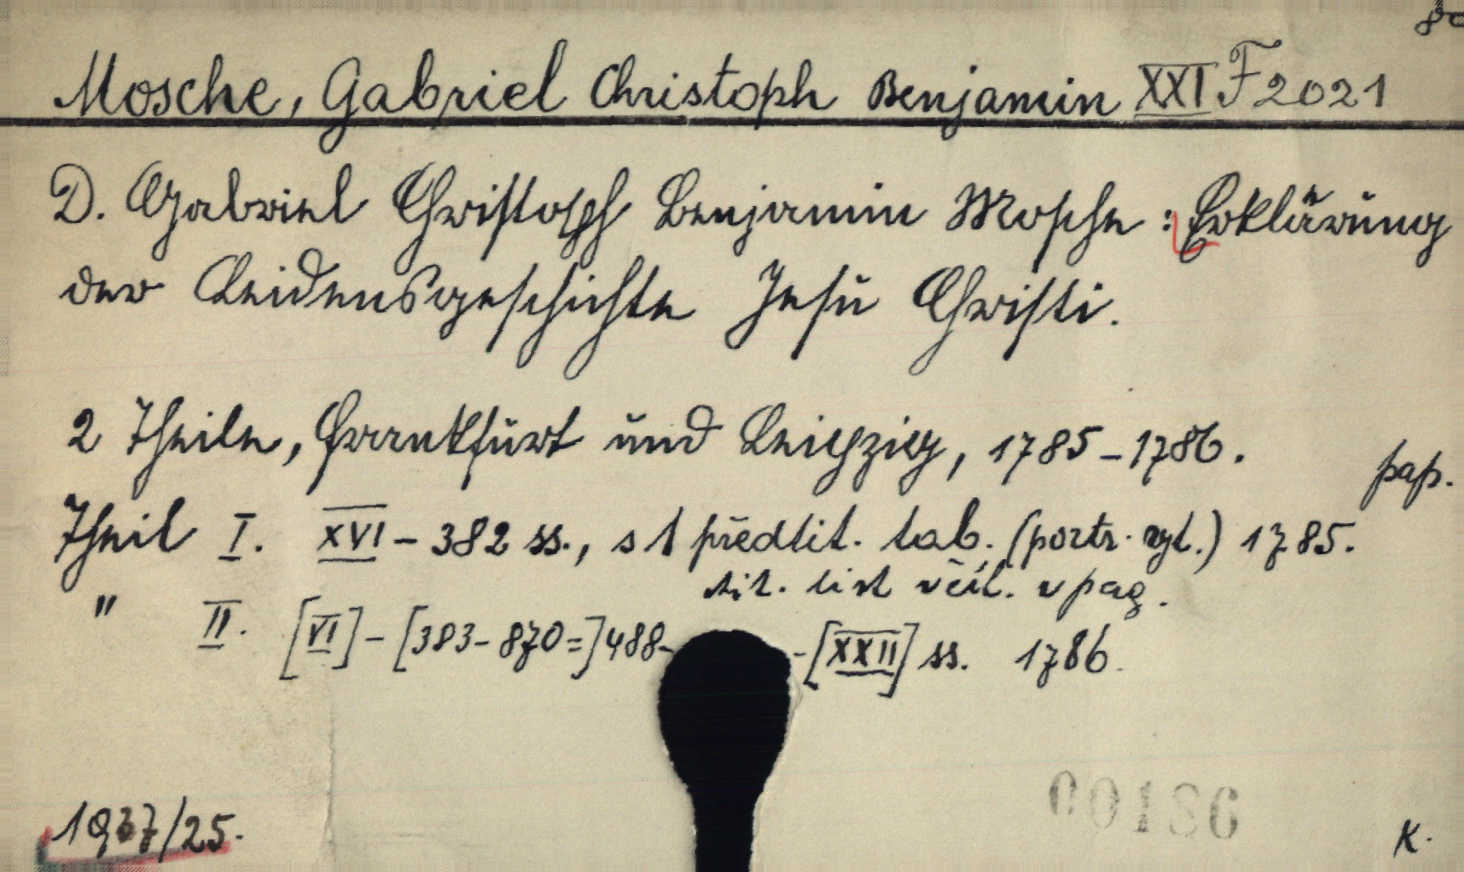 8º
Mosche, Gabriel Christoph Benjamin XXI F 2021
D. Gabriel Christoph Benjamin Mosche: Erklärung
der Leidensgeschichte Jesu Christi.
2 Theile, Frankfurt und Leipzig, 1785-1786.
pap.
Theil I. XVI - 382 ss., s 1 předtit. tab. (portr. ryt.) 1785.
tit. list včít. v pag.
" II. [VI] - [383-870=]488- -[XXII] ss. 1786.
1937/25.
00186
K.